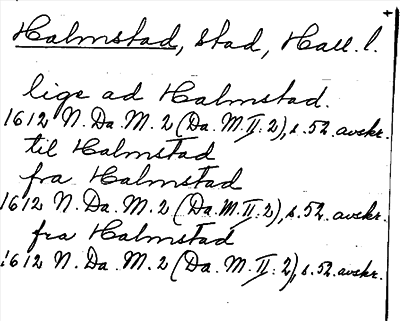 Halmstad, stad, Hall. l.
lige ad Halmstad.
1612 N. Da. M. 2 (Da. M. II: 2), s. 52. avskr.
til Halmstad
fra Halmstad
1612 N. Da. M. 2 (Da. M. II: 2), s. 52. avskr.
fra Halmstad
1612 N. Da. M. 2 (Da. M. II: 2), s. 52. avskr.